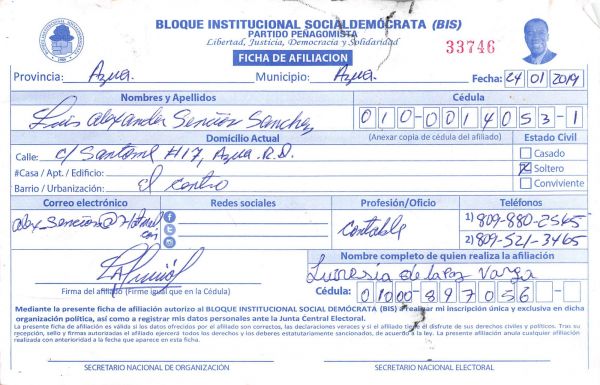 BLOQUE INSTITUCIONAL SOCIALDEMÓCRATA (BIS)
PARTIDO PEÑAGOMISTA
Libertad, Justicia, Democracia y Solidaridad
33746
FICHA DE AFILIACION
Provincia: Azua. Municipio: Azua. Fecha: 24 01 2019
Nombres y Apellidos Cédula
Luis Alexander Sención Sánchez 010-0014053-1
Domicilio Actual (Anexar copia de cédula del afiliado) Estado Civil
Calle: c/ Santomé #17, Azua. R.D. Casado
#Casa / Apt. / Edificio: Soltero
Barrio / Urbanización: El Centro Conviviente
Correo electrónico Redes sociales Profesión/Oficio Teléfonos
alex_sencion@Hotmail.com Contable 1) 809-880-2565
2) 809-521-3465
Nombre completo de quien realiza la afiliación
de la Paz
Firma del afiliado (Firme igual que en la Cédula) Cédula: 01000-897056-
Mediante la presente ficha de afiliación autorizo al BLOQUE INSTITUCIONAL SOCIAL DEMÓCRATA (BIS) a realizar mi inscripción única y exclusiva en dicha
organización política, así como a registrar mis datos personales ante la Junta Central Electoral.
La presente ficha de afiliación es válida si los datos ofrecidos por el afiliado son correctos, las declaraciones veraces y si el afiliado tiene el disfrute de sus derechos civiles y políticos. Tras su
recepción, sello y firmas autorizadas el afiliado ejercerá todos los derechos y los deberes estatutariamente sancionados, de acuerdo a la ley. La presente afiliación anula cualquier afiliación
realizada con anterioridad a la fecha que aparece en esta ficha.
SECRETARIO NACIONAL DE ORGANIZACIÓN SECRETARIO NACIONAL ELECTORAL